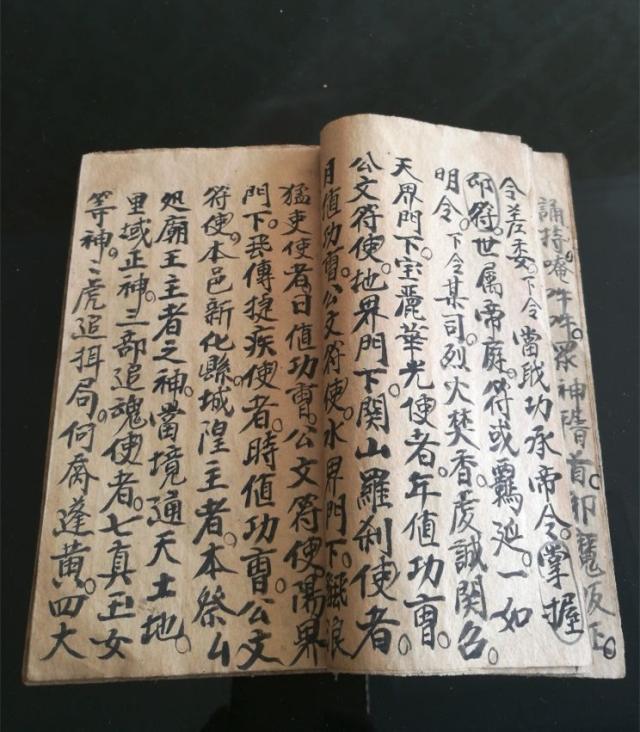 誦持唵吽吽。眾神階首。邜魔返正。
令差委。下令當戝功承帝令。掌握
邜符。世属帝庭。符或羁延。一如
明令。下令某司。烈火焚香。虔誠関召。
天界門下。宝麗華光使者。年値功曺。
公文符使。地界門下関山羅刹使者
月值功曺公文符使。水界門下。
猛吏使者。日値功曺。公文符使陽界
門下。飛傳捷疾使者。時值功曺公文
符使。本邑新化縣城隍主者。本祭厶
処廟王主者之神。當境通天土地。
里域正神。三部追魂使者。七真玉女
等神。二虎追捉局。何喬蓬黄。四大